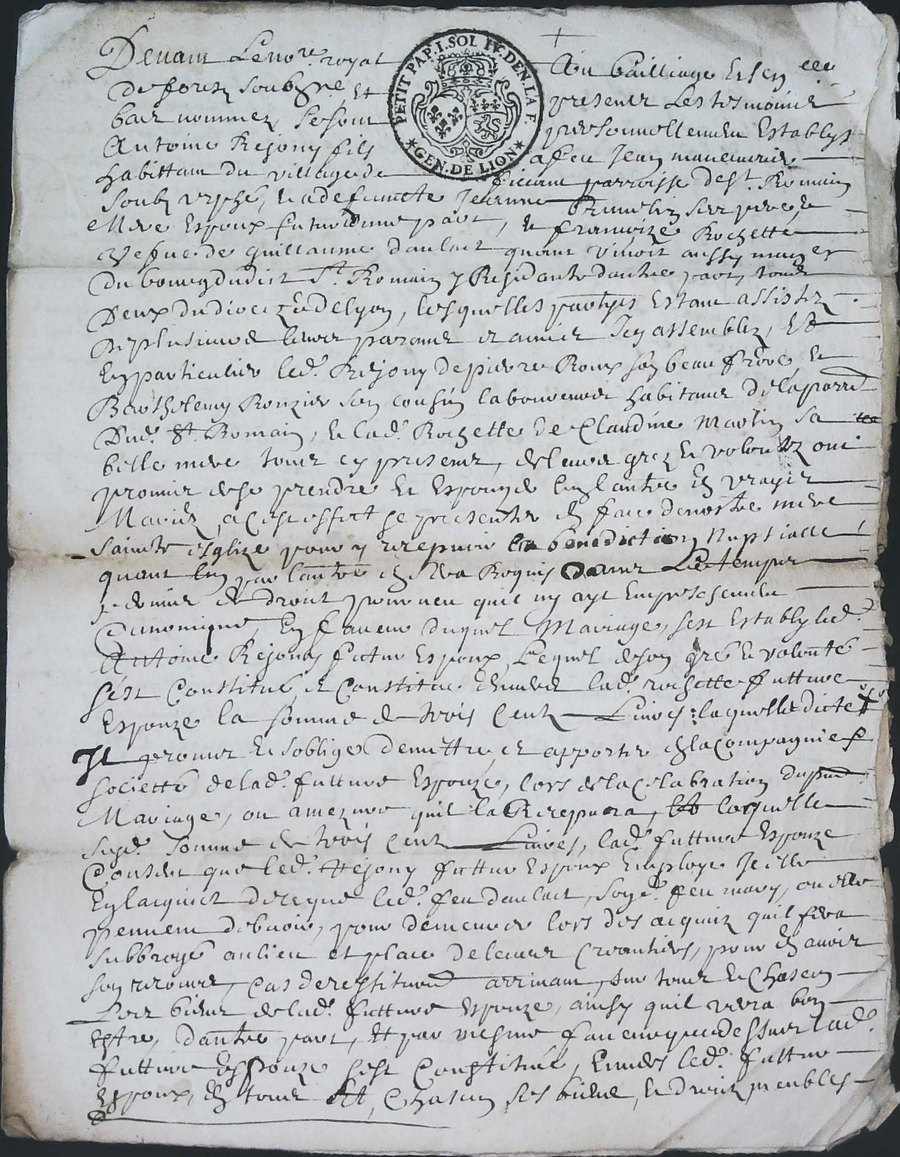 PETIT PAP. I. SOL IV. DEN. LA F.
GEN. DE LION
Devant Le nore royal Au bailliage et sen
de forez soubzne. et presence Les tesmoins
bas nommez se sont personnellement establys
Antoine Rejony fils a feu Jean
habittant du village de parroisse de St. Romain
soubz urphé, et a deffuncte Jeanne
Mere espoux futur d'une part, et françoize Rochette
vefve de guillaume daulait quant vivoit aussy
du bourg dudict St. Romain y Residante d'autre part, tous
Deux du dioceze de lyon, lesquelles partyes estant assistez
de plusieurs leurs parans et amis icy assemblez, et
en particulier led. Rejony de pierre Roux son beau frere et
Barthelemy Ronzier son cousin laboureurs habitans de la parr.
Dud. St. Romain, et lad. Rochette de Claudine Martin sa
belle mere tous cy presens, de leurs grez et volontez ont
promis de se prendre et espouzer l'un l'autre en vrays
Mariez, a cest effect se presenter en face de nostre mere
saincte esglize pour y recepvoir la benediction Nuptialle
quant l'un par l'autre en sera Requis dans Le temps
de droit pourveu qu'il n'y aye Empeschement
Canonique, En faveur duquel Mariage, s'est estably led.
Antoine Rejony futur espoux, Lequel de son gré et volonté
s'est Constitué et constitue envers lad. rochette future
Espouze la somme de trois cent Livres; laquelle dicte
Il promet et s'oblige de mettre, et apporter en la compagnie et
societté de lad. future Espouze, lors de la celabration du pnt
Mariage, ou a mezure qu'il la Recepvra, laquelle
susd. somme de trois cent Livres, lad. future Espouze
Consent que led. Rejony futtur Espoux Employe Icelle
En l'acquict de ce que led. feu daulait, son d. feu mary, ou elle
peuvent debvoir, pour demeurer lors des acquitz qu'il fera
subbrogé au lieu et place de leurs creantiers, pour en avoir
son recours, cas de restitution arrivant, sur tous et chascun
Les biens de lad. future Espouze, ainsy qu'il verra bon
estre, d'autre part, Et par mesme faveur que dessus lad.
futture Espouze s'est Constitué, Envers led. futtur
Espoux, en tous Et, chascun ses biens, et droitz meubles